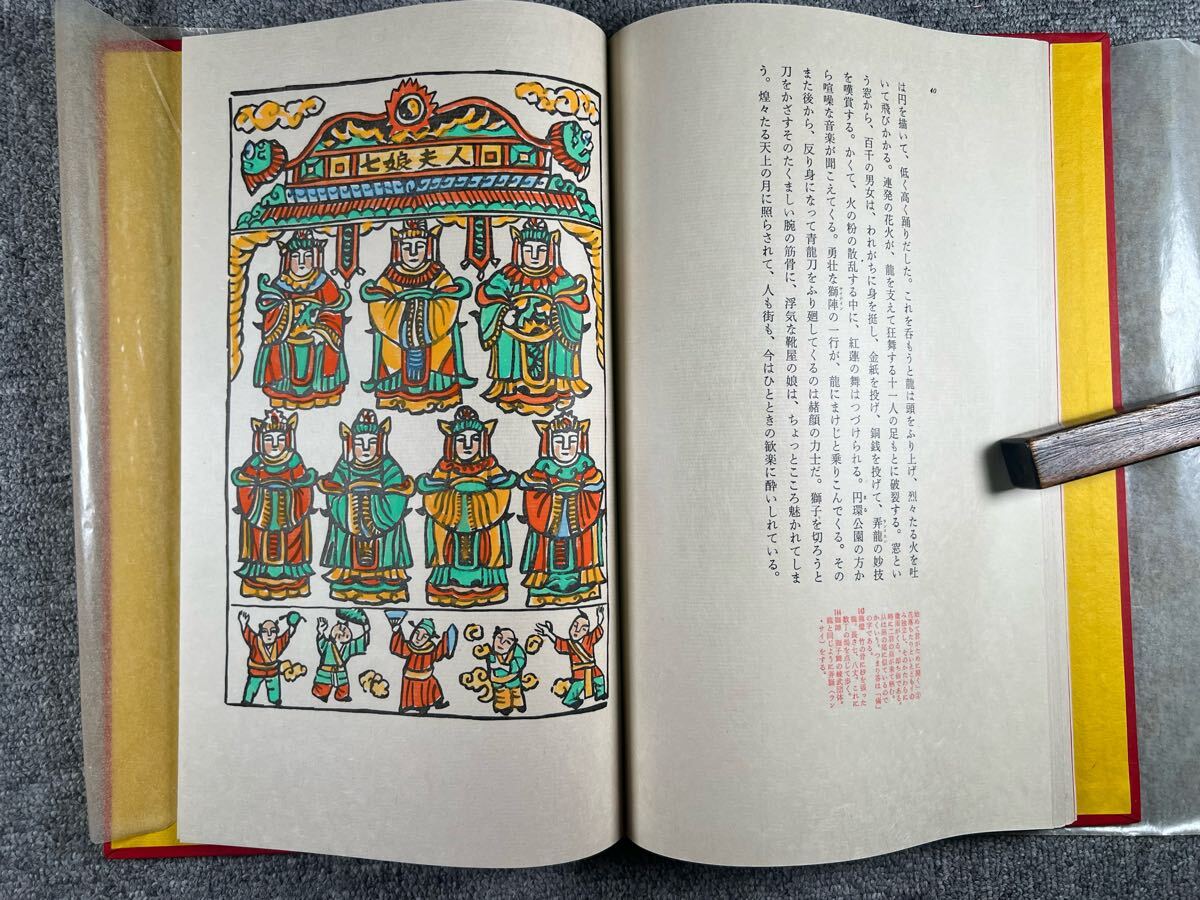 40
は円を描いて、低く高く踊りだした。これを呑もうと龍は頭をふり上げ、烈々たる火を吐
いて飛びかかる。連発の花火が、龍を支えて狂舞する十一人の足もとに破裂する。窓とい
う窓から、百千の男女は、われがちに身を挺し、金紙を投げ、銅銭を投げて、弄龍の妙技
を嘆賞する。かくて、火の粉の散乱する中に、紅蓮の舞はつづけられる。円環公園の方か
ら喧噪な音楽が聞こえてくる。勇壮な獅陣の一行が、龍にまけじと乗りこんでくる。その
また後から、反り身になって青龍刀をふり廻してくるのは緒顔の力士だ。獅子を切ろうと
刀をかざすそのたくましい腕の筋骨に、浮気な靴屋の娘は、ちょっとこころ魅かれてしま
う。煌々たる天上の月に照らされて、人も街も、今はひとときの歓楽に酔いしれている。
の字である。
龍。長さ七、八丈。これに
数丁の燭を点じて歩く。
龍と同じように弄獅(ラン
・サイ)をする。
七娘夫人